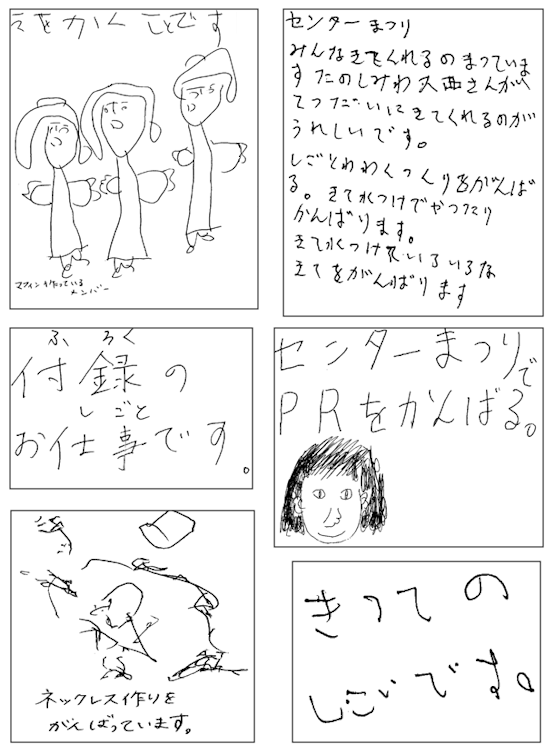 えをかくことです
マフィン作っている
メンバー
センターまつり
みんなきてくれるのまっていま
す たのしみわ大西さんが
てつだいにきてくれるのが
うれしいです。
しごとわわくっくりをがんば
る。きて水つけでやったり
がんばります。
きて水つけていろいろな
きてをがんばります
ふろく
付録の
しごと
お仕事です。
センターまつりで
PRをがんばる。
ネックレス作りを
がんばっています。
きっての
しごいです。